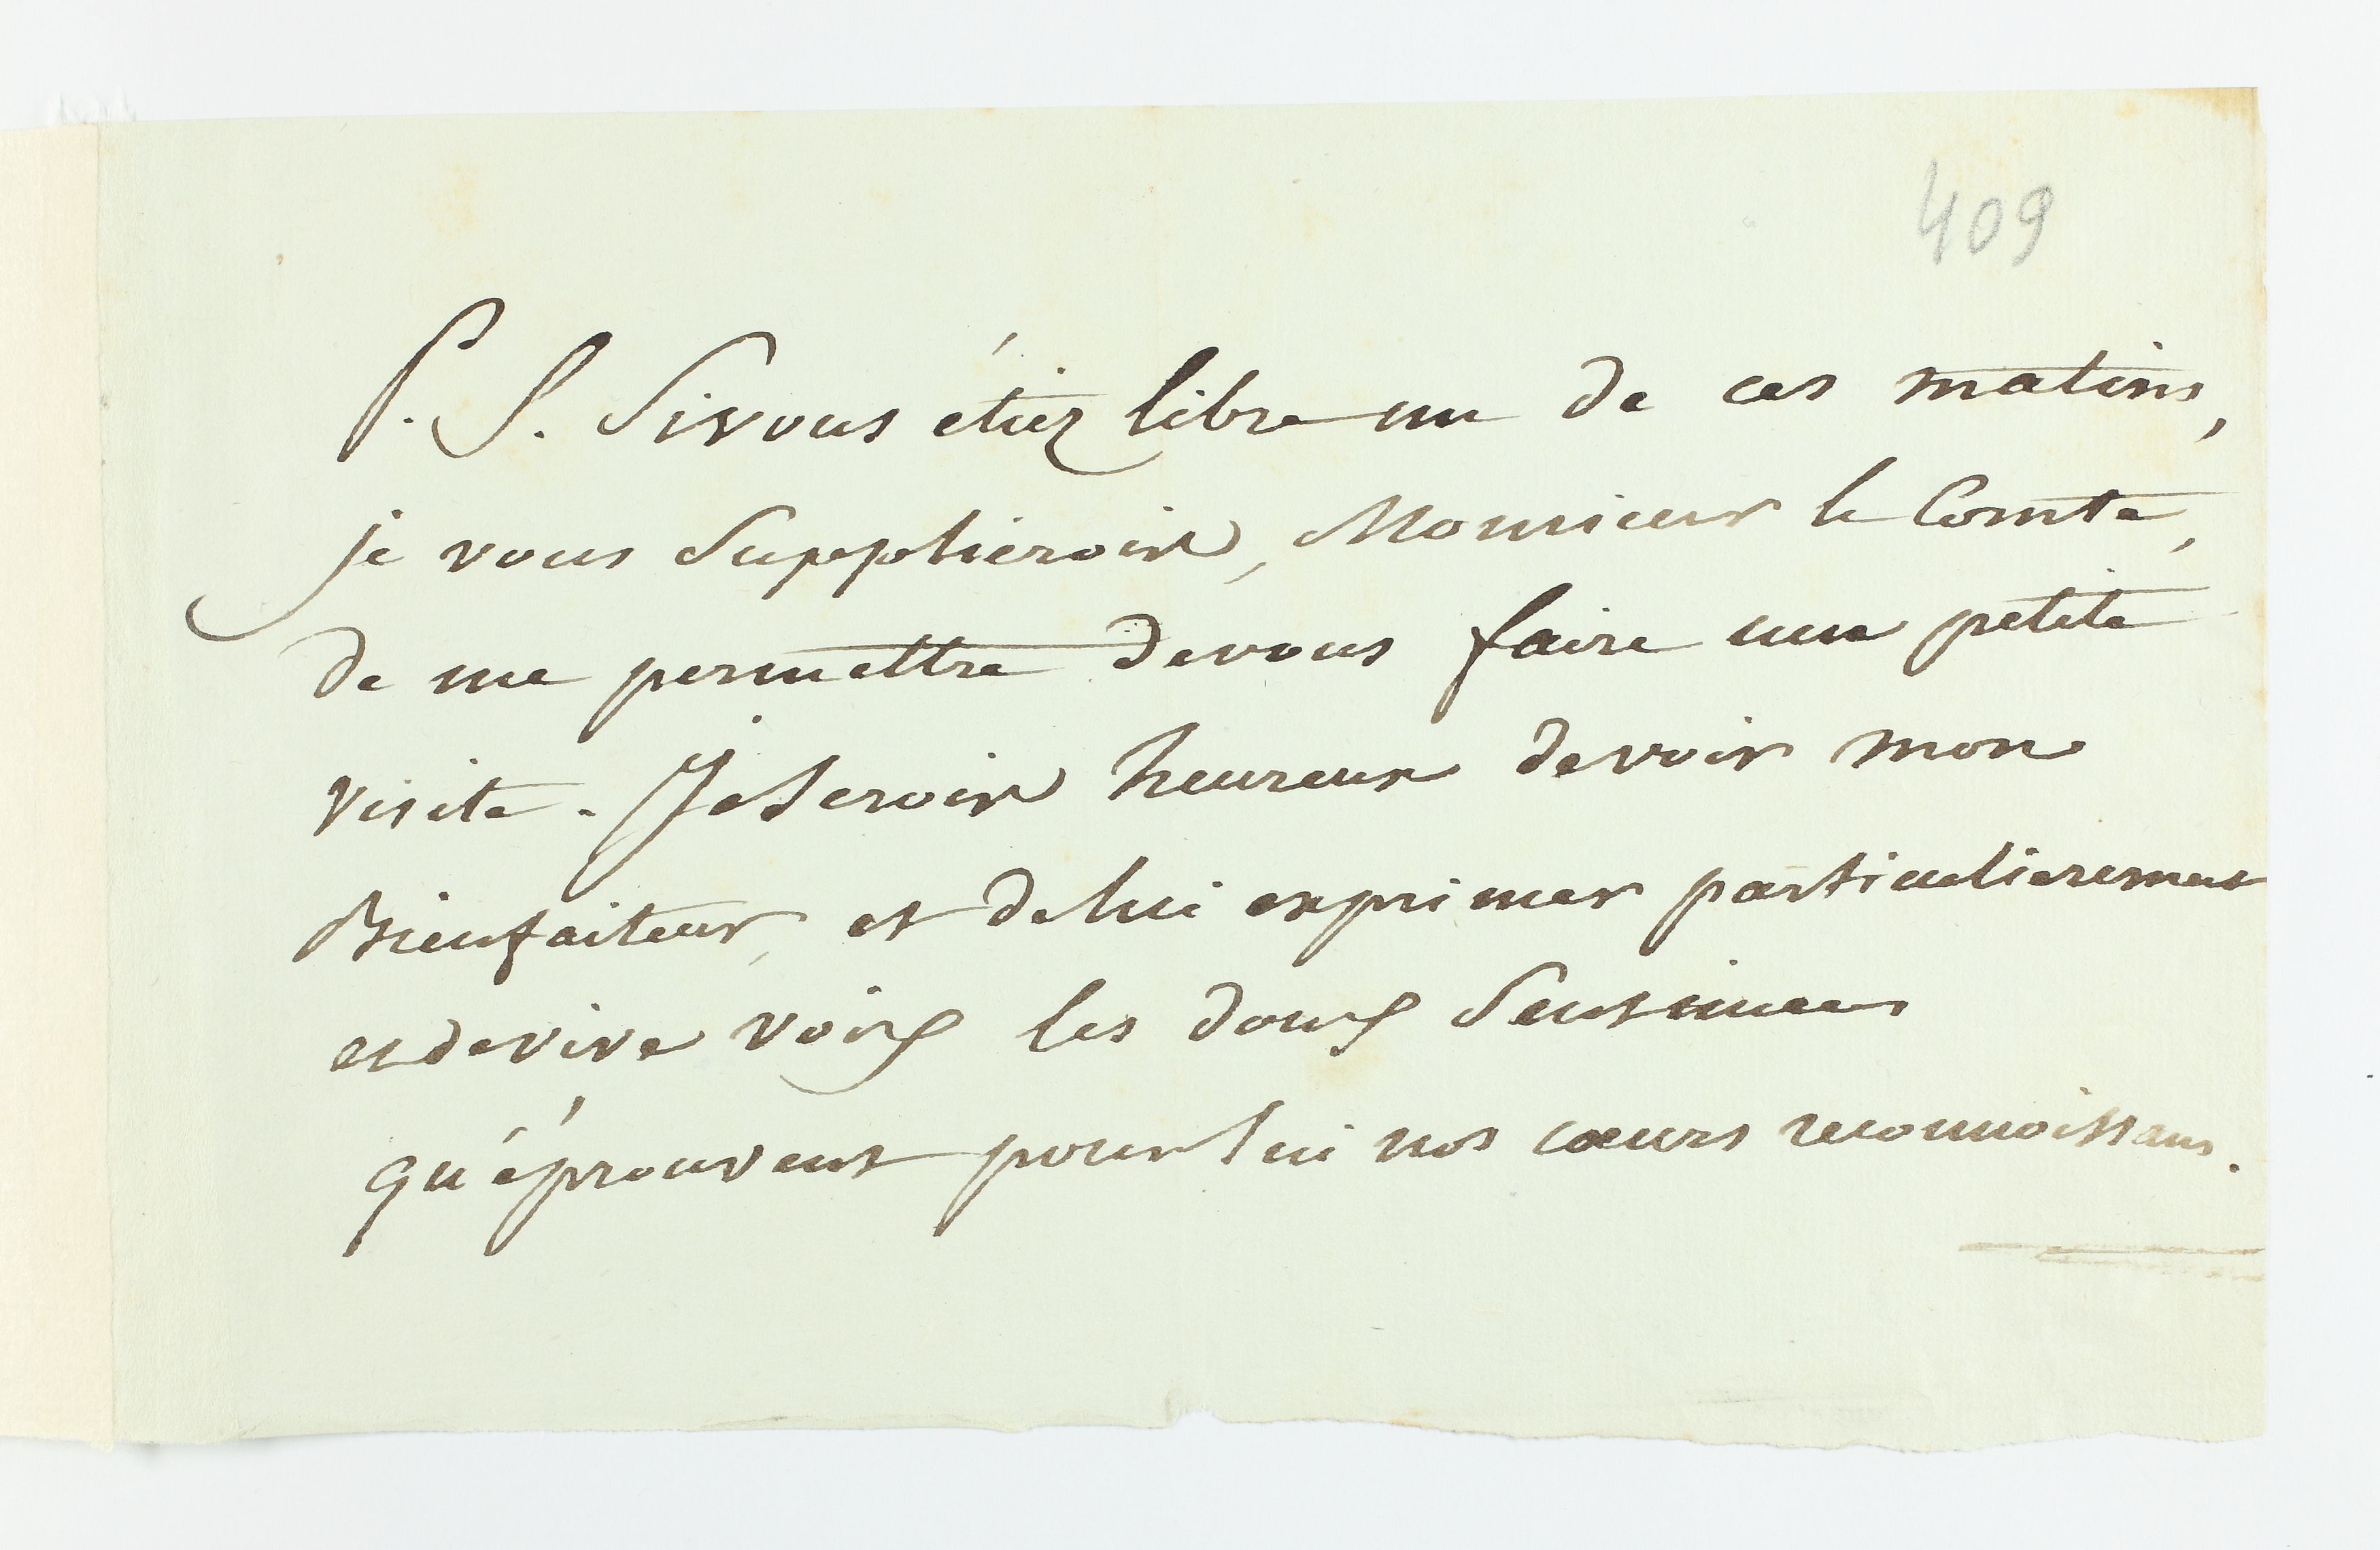 409
P. S. Si vous étiez libre un de ces matins,
je vous supplierois, Monsieur le Comte,
de me permettre de vous faire une petite
visite. Je serois heureux de voir mon
Bienfaiteur, et de lui exprimer particulierement
et de vive voix les doux sentimens
qu'éprouvent pour lui nos cœurs reconnoissans.